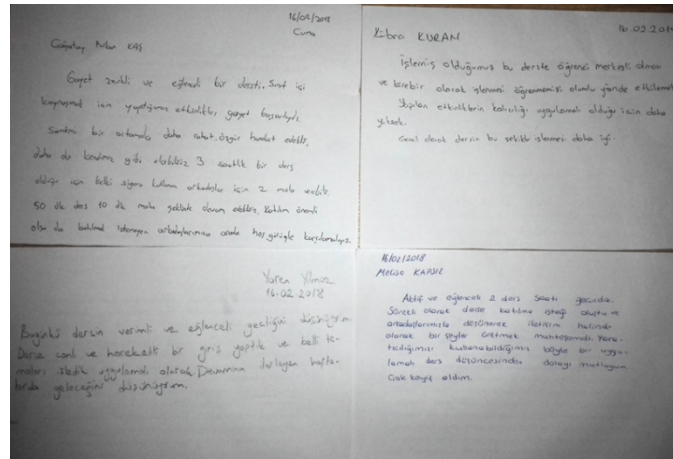 16/02/2018
Cuma
Gayet zevkli ve eğlenceli bir dersti. Sınıf içi
kaynaşmak için yaptığımız etkinlikler gayet başarılıydı.
bir ortamda daha rahat, özgür hareket edebilir,
daha da kendimiz gibi olabiliriz 3 saatlik bir ders
olduğu için belki sigara kullanan arkadaşlar için 2 mola verilir.
50 dk ders 10 dk mola şeklinde devam edebilir. Katılım önemli
olsa da katılmak istemeyen arkadaşlarımızı orada hoşgörüyle karşılamalıyız.
Kübra KURAN
16.02.2018
İşlemiş olduğumuz bu derste öğrenci merkezli olması
ve birebir olarak işlenmesi öğrenmemizi olumlu yönde etkilemekte
Yapılan etkinliklerin kalıcılığı uygulamalı olduğu için daha
yüksek.
Genel olarak dersin bu şekilde işlenmesi daha iyi.
Yaren Yılmaz
16.02.2018
Bugünkü dersin verimli ve eğlenceli geçtiğini düşünüyorum.
Derse canlı ve hareketli bir giriş yaptık ve belli te-
maları işledik uygulamalı olarak. Devamının ilerleyen hafta-
larda geleceğini düşünüyorum.
16/02/2018
Melisa
Aktif ve eğlenceli 2 ders saati geçirdik.
Sürekli olarak derse katılma isteği oluştu ve
arkadaşlarımızla düşünerek iletişim halinde
olarak bir şeyler üretmek muhteşemdi. Yara-
tıcılığımızı kullanabildiğimiz böyle bir uygu-
lamalı ders düşüncesinden dolayı mutluyum
Çok keyif aldım.